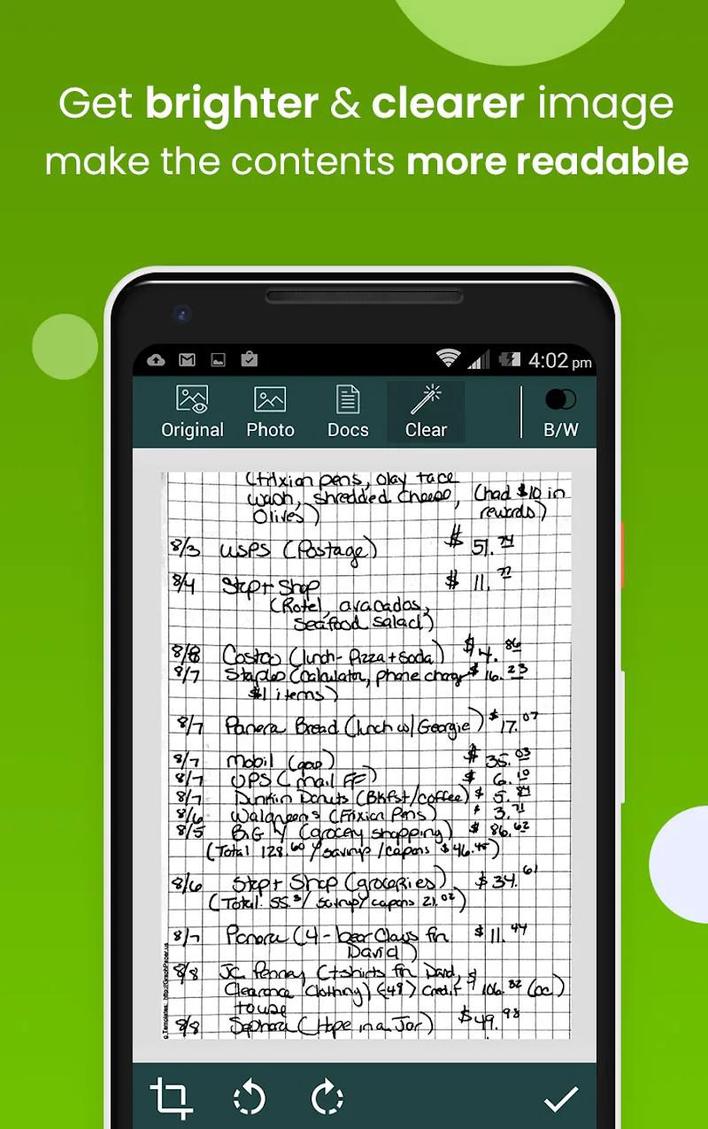 Get brighter & clearer image
make the contents more readable
4:02 pm
Original Photo Docs Clear B/W
(Frixion pens, olay face
wash, shredded cheese, (had $10 in
Olives) rewards)
8/3 USPS (Postage) $ 51.74
8/4 Stop + Shop $ 11.77
(Rotel, avacados,
Seafood salad)
8/8 Costco (lunch- Pizza + Soda) $ 4.86
8/7 Staples (calculator, phone charg $ 16.23
$1 items)
8/7 Panera Bread (lunch w/ Georgie) $ 17.07
8/7 Mobil (gas) $ 35.03
8/7 UPS (mail FF) $ 6.10
8/7 Dunkin Donuts (Bkfst/coffee) $ 5.
8/6 Walgreens (Frixion Pens) $ 3.71
8/5 BIG Y (grocery shopping) $ 86.62
(Total 128.60 / savings /capons $46.45)
8/6 Stop + Shop (groceries) $ 34.61
(Total 55. / savings capons 21.02)
8/7 Panera (4 - bear Claws for $ 11.44
David)
8/8 JC Penney (t-shirts for David, $
Clearance Clothing) (-49) credit 106.32 (cc)
to use
8/8 Sephora (Hope in a Jar) $49.98
Templates: http://GraphPaper.us